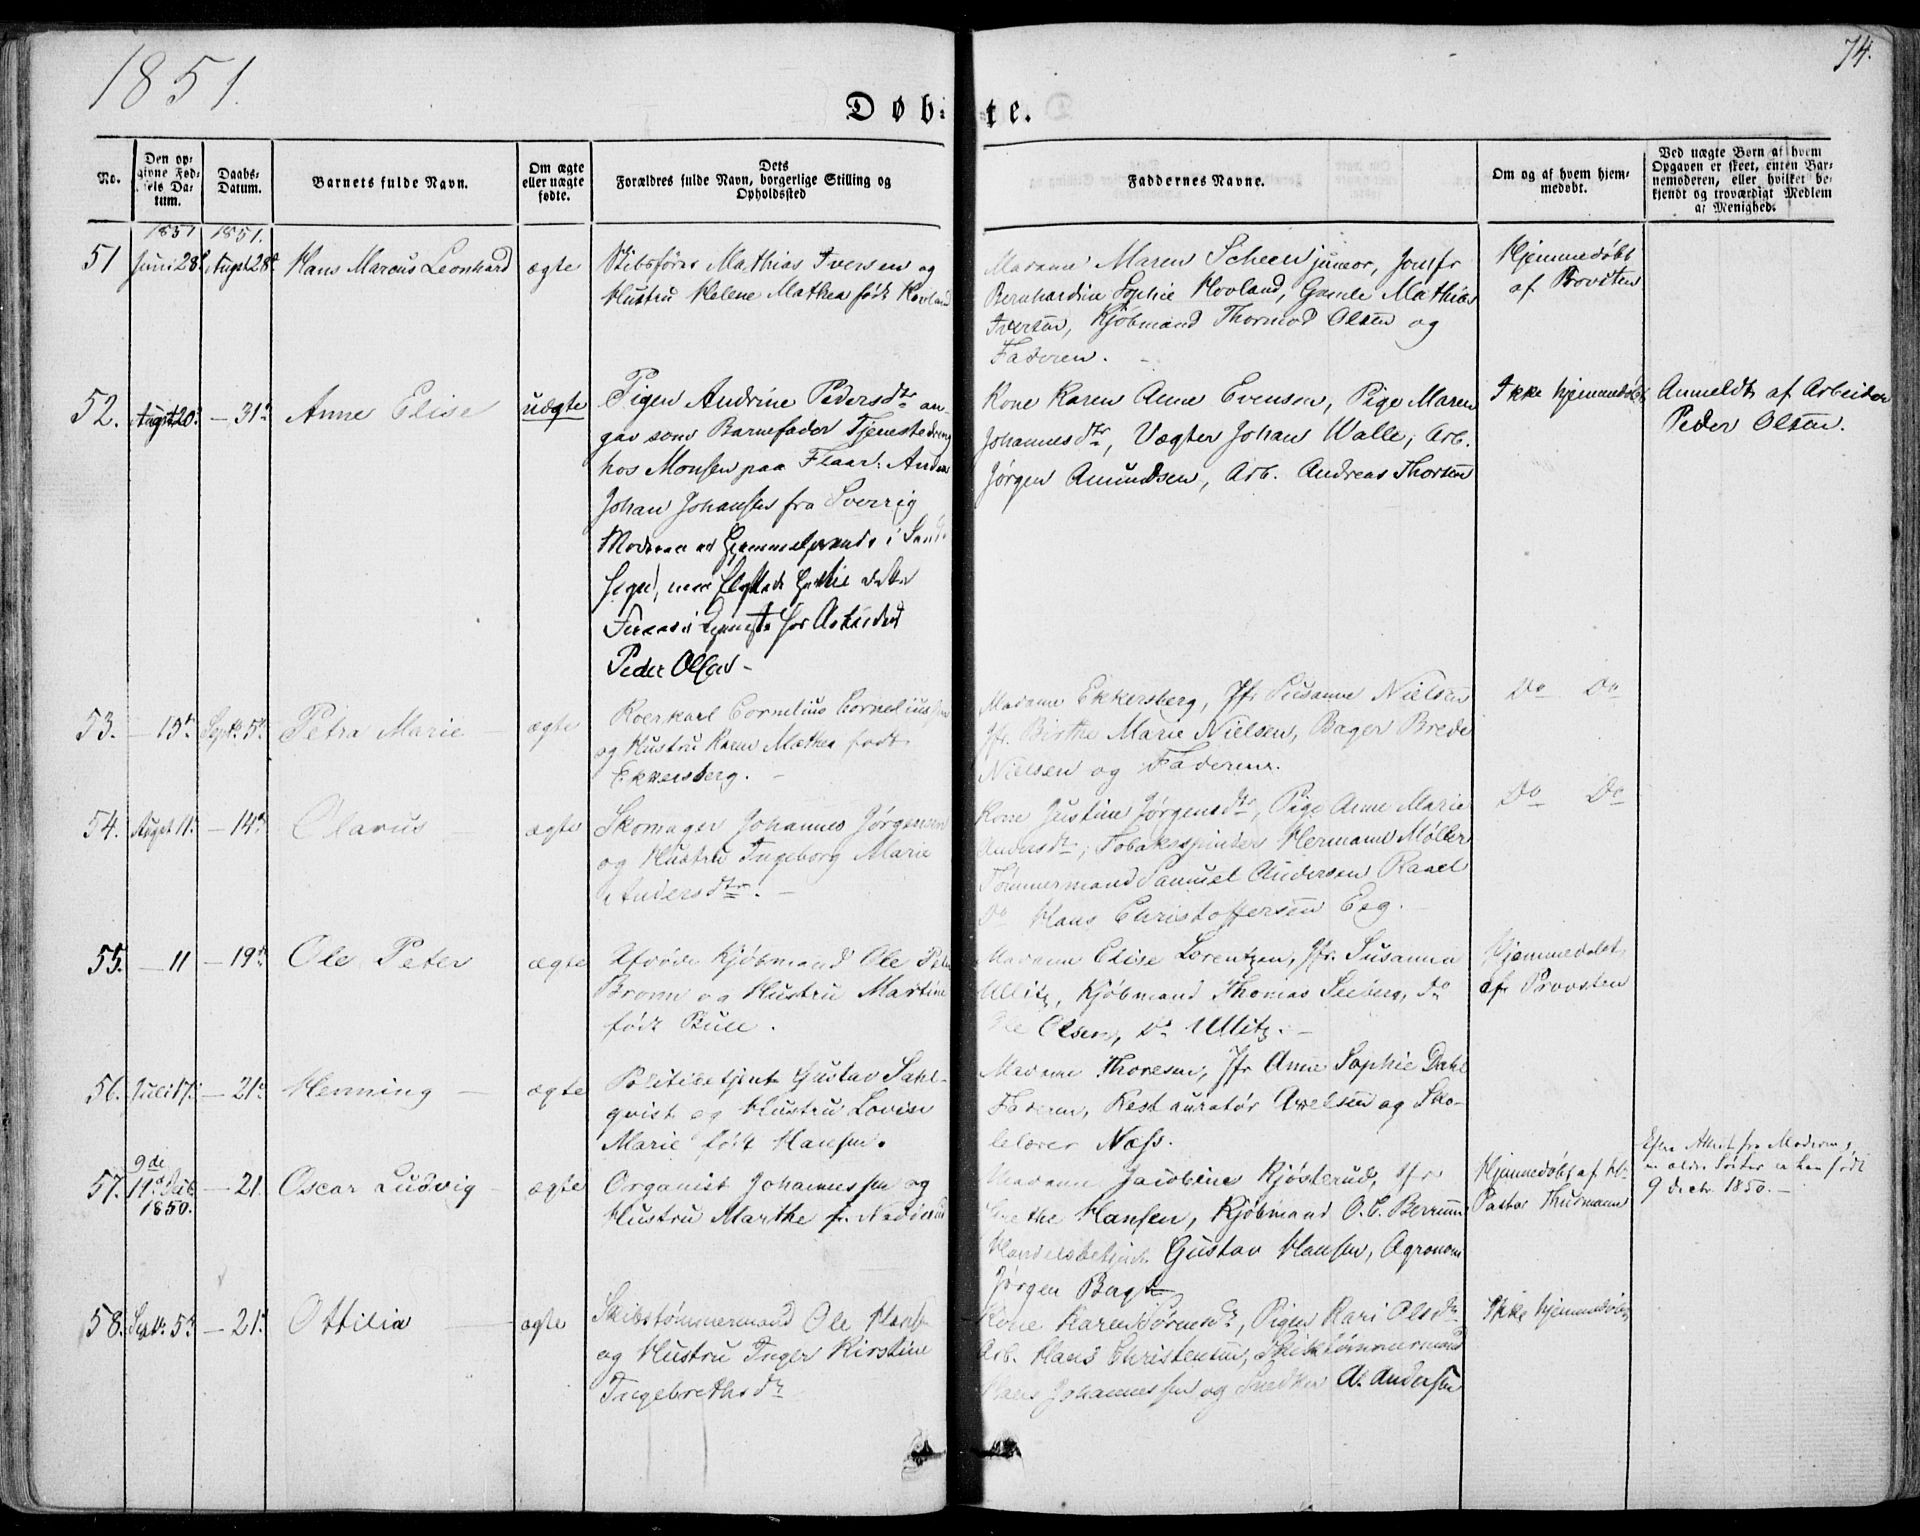 1851.
74.
Døbte.
No.
Den opgivne Fødsels Datum.
Daabs-Datum.
Barnets fulde Navn.
Om ægte eller uægte fødte.
Dets Forældres fulde Navn, borgerlige Stilling og Opholdssted
Faddernes Navne.
Om og af hvem hjemmedøbt.
Ved uægte Børn af hvem Opgaven er skeet, enten Barnemoderen, eller hvilket bekjendt og troværdigt Medlem af Menighed.
1851 1851.
51 Juni 28 Augst 28 Hans Marcus Leonhard ægte
Skibsfører Mathias Iversen og
Hustru Helene Mathea født Hovland
Madame Maren Scheen junior, Jomfr
Bernhardine Sophie Hovland, Gamle Mathias
Iversen, Kjøbmand Thormod Olsen og
Faderen.
Hjemmedøbt
af Provsten
52. Augst 20 — 31 Anne Elise uægte
Pigen Andrine Pedersdtr an-
gav som Barnefader Tjenestedreng
hos Monsen paa Flaar: Anders
Johan Johansen fra Sverrig
Peder Olsen
Kone Karen Anne Evensen, Pige Maren
Johannesdtr, Vægter Johan Walle, Arb.
Jørgen Amundsen, Arb. Andreas Thorsen
Ikke hjemmedøbt
Anmeldt af Arbeider
Peder Olsen.
53. — 15 Sept. 5 Petra Marie — ægte
Cornelius Corneliussen
og Hustru Karen Mathea født
Ekkersberg. —
Madame Ekkersberg, Jfr. Susanne Nielsen
Jfr. Birthe Marie Nielsen, Bager Brede
Nielsen og Faderen.
Do Do
54. Augst 11. — 14 Olavus ægte
Skomager Johannes Jørgensen
og Hustru Ingeborg Marie
Andersdtr. —
Kone Justine Jørgensdtr, Pige Anne Marie
Andersdtr, Tobaksspinder Hermann Møller
Tømmermand Samuel Andersen
Do Hans Christoffersen Eeg.
Do Do
55. — 11 — 19 Ole Peter ægte
Kjøbmand Ole Peter
Bronn og Hustru Martine
født Bull.
Madam Elise Lorentzen, Jfr. Susanna
Ullitz, Kjøbmand Thomas Seeberg, Do
Ole Olsen, Do Ullitz. —
Hjemmedøbt
af Provsten
56. Juli 17. — 21 Henning — ægte
Politibetjent Gustav Sahl-
qvist og Hustru Lovise
Marie født Hansen.
Madame Thoresen, Jfr Anne Sophie Dahl
Faderen, Restauratør Axelsen og Sko-
lelærer Næss.
57. 9de 11 1850. — 21 Oscar Ludvig — ægte
Organist Johannessen og
Hustru Marthe f.
Madam Jacobine Kjøsterud, Jfr
Grethe Hansen, Kjøbmand O. C. Berrum
Handelsbetjent Gustav Hansen, Agronom
Jørgen
Hjemmedøbt af Hr
Pastor Thurmann
Efter Attest fra Moderen,
er han født
9 decbr. 1850. —
58. Septbr. 5 — 21 Ottilia — ægte
Skibstømmermand Ole Hansen
og Hustru Inger Kirstine
Ingebrethsdtr
Kone Karen Sørensdtr, Pigen Kari Olsdtr
Arb. Hans Christensen, Skibstømmermand
Hans Johannessen og Snedker A. Andersen
Ikke hjemmedøbt